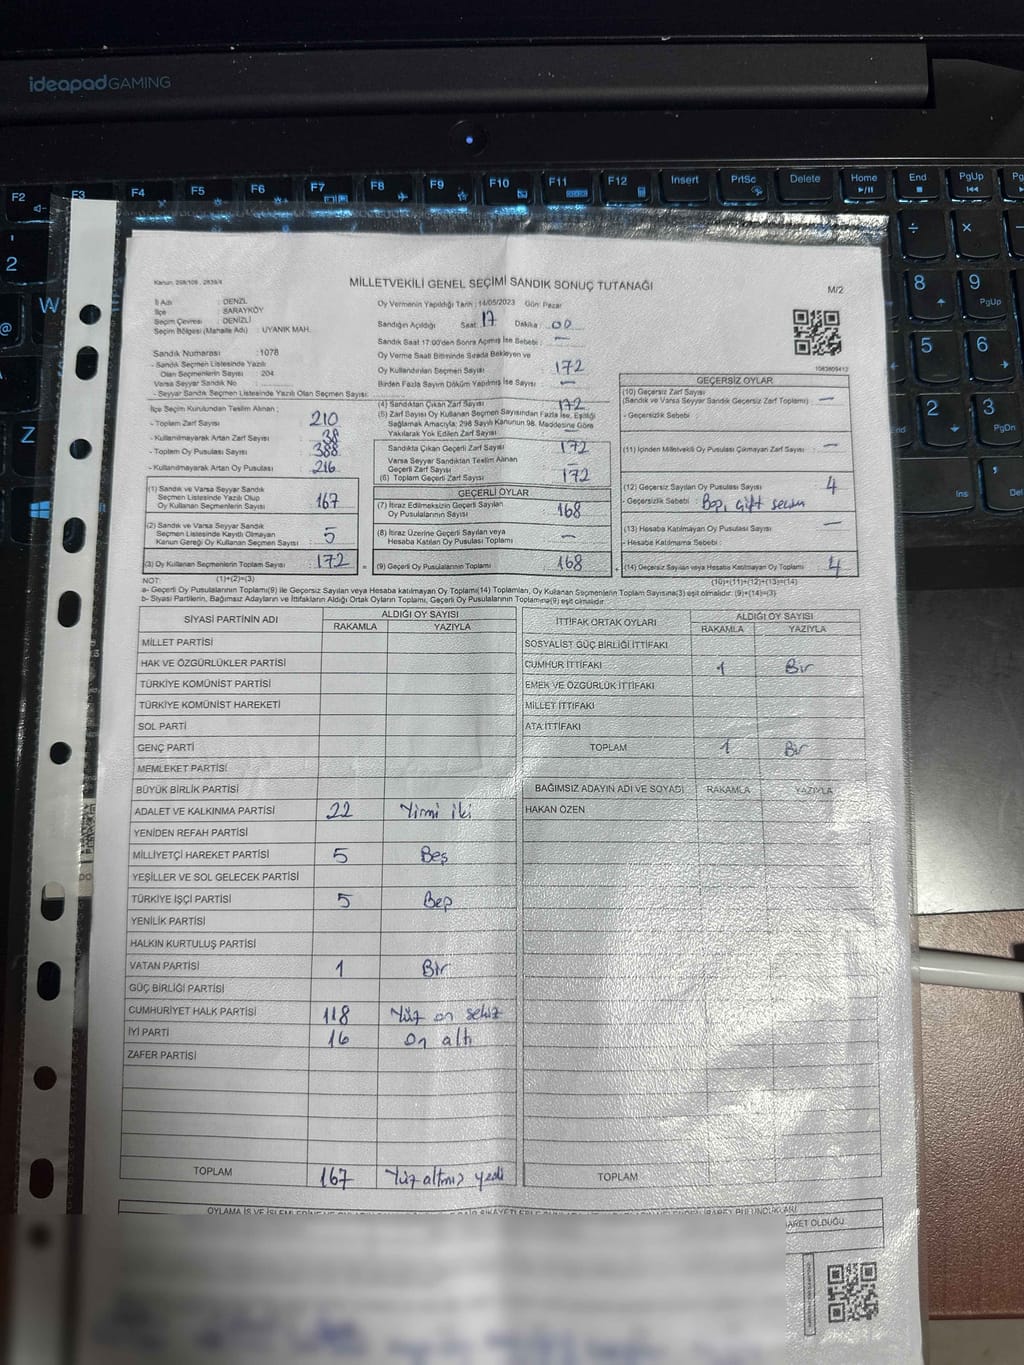 ideapad GAMING
F2 F3 F4 F5 F6 F7 F8 F9 F10 F11 F12 Insert PrtSc Delete Home End PgUp
MİLLETVEKİLİ GENEL SEÇİMİ SANDIK SONUÇ TUTANAĞI
M/2
İl Adı : DENZL
İlçe : SARAYKÖY
Seçim Çevresi : DENİZLİ
Seçim Bölgesi (Mahalle Adı) : UYANIK MAH.
Sandık Numarası : 1078
- Sandık Seçmen Listesinde Yazılı
Olan Seçmenlerin Sayısı : 204
Varsa Seyyar Sandık No
- Seyyar Sandık Seçmen Listesinde Yazılı Olan Seçmen Sayısı:
Oy Vermenin Yapıldığı Tarih : 14/05/2023 Gün: Pazar
Sandığın Açıldığı Saat: 17 Dakika : 00
Sandık Saat 17:00'den Sonra Açılmış İse Sebebi : —
Oy Verme Saati Bitiminde Sırada Bekleyen ve
Oy Kullandırılan Seçmen Sayısı : 172
Birden Fazla Sayım Döküm Yapılmış İse Sayısı : —
1083809412
İlçe Seçim Kurulundan Teslim Alınan ;
- Toplam Zarf Sayısı : 210
- Kullanılmayarak Artan Zarf Sayısı : 38
- Toplam Oy Pusulası Sayısı : 388
- Kullanılmayarak Artan Oy Pusulası : 216
(1) Sandık ve Varsa Seyyar Sandık
Seçmen Listesinde Yazılı Olup
Oy Kullanan Seçmenlerin Sayısı : 167
(2) Sandık ve Varsa Seyyar Sandık
Seçmen Listesinde Kayıtlı Olmayan
Kanun Gereği Oy Kullanan Seçmen Sayısı : 5
(3) Oy Kullanan Seçmenlerin Toplamı : 172
(1)+(2)=(3)
(4) Sandıktan Çıkan Zarf Sayısı : 172
(5) Zarf Sayısı Oy Kullanan Seçmen Sayısından Fazla İse, Eşitliği
Sağlamak Amacıyla; 298 Sayılı Kanunun 98. Maddesine Göre
Yakılarak Yok Edilen Zarf Sayısı : —
Sandıkta Çıkan Geçerli Zarf Sayısı : 172
Varsa Seyyar Sandıktan Teslim Alınan
Geçerli Zarf Sayısı : —
(6) Toplam Geçerli Zarf Sayısı : 172
GEÇERLİ OYLAR
(7) İtiraz Edilmeksizin Geçerli Sayılan
Oy Pusulalarının Sayısı : 168
(8) İtiraz Üzerine Geçerli Sayılan veya
Hesaba Katılan Oy Pusulası Toplamı : —
(9) Geçerli Oy Pusulalarının Toplamı : 168
GEÇERSİZ OYLAR
(10) Geçersiz Zarf Sayısı
(Sandık ve Varsa Seyyar Sandık Geçersiz Zarf Toplamı) : —
- Geçersizlik Sebebi :
(11) İçinden Milletvekili Oy Pusulası Çıkmayan Zarf Sayısı : —
(12) Geçersiz Sayılan Oy Pusulası Sayısı : 4
- Geçersizlik Sebebi : Boş, çift seçim
(13) Hesaba Katılmayan Oy Pusulası Sayısı : —
- Hesaba Katılmama Sebebi :
(14) Geçersiz Sayılan veya Hesaba Katılmayan Oy Toplamı : 4
(10)+(11)+(12)+(13)=(14)
NOT:
a- Geçerli Oy Pusulaları Toplamı(9) ile Geçersiz Sayılan veya Hesaba katılmayan Oy Toplamı(14) Toplamları, Oy Kullanan Seçmenlerin Toplam Sayısına(3) eşit olmalıdır. (9)+(14)=(3)
b- Siyasi Partilerin, Bağımsız Adayların ve İttifakların Aldığı Ortak Oyların Toplamı, Geçerli Oy Pusulalarının Toplamına(9) eşit olmalıdır.
SİYASİ PARTİNİN ADI ALDIĞI OY SAYISI
RAKAMLA YAZIYLA
MİLLET PARTİSİ
HAK VE ÖZGÜRLÜKLER PARTİSİ
TÜRKİYE KOMÜNİST PARTİSİ
TÜRKİYE KOMÜNİST HAREKETİ
SOL PARTİ
GENÇ PARTİ
MEMLEKET PARTİSİ
BÜYÜK BİRLİK PARTİSİ
ADALET VE KALKINMA PARTİSİ 22 Yirmi iki
YENİDEN REFAH PARTİSİ
MİLLİYETÇİ HAREKET PARTİSİ 5 Beş
YEŞİLLER VE SOL GELECEK PARTİSİ
TÜRKİYE İŞÇİ PARTİSİ 5 Beş
YENİLİK PARTİSİ
HALKIN KURTULUŞ PARTİSİ
VATAN PARTİSİ 1 Bir
GÜÇ BİRLİĞİ PARTİSİ
CUMHURİYET HALK PARTİSİ 118 Yüz on sekiz
İYİ PARTİ 16 On altı
ZAFER PARTİSİ
TOPLAM 167 Yüz altmış yedi
İTTİFAK ORTAK OYLARI ALDIĞI OY SAYISI
RAKAMLA YAZIYLA
SOSYALİST GÜÇ BİRLİĞİ İTTİFAKI
CUMHUR İTTİFAKI 1 Bir
EMEK VE ÖZGÜRLÜK İTTİFAKI
MİLLET İTTİFAKI
ATA İTTİFAKI
TOPLAM 1 Bir
BAĞIMSIZ ADAYIN ADI VE SOYADI RAKAMLA YAZIYLA
HAKAN ÖZEN
TOPLAM